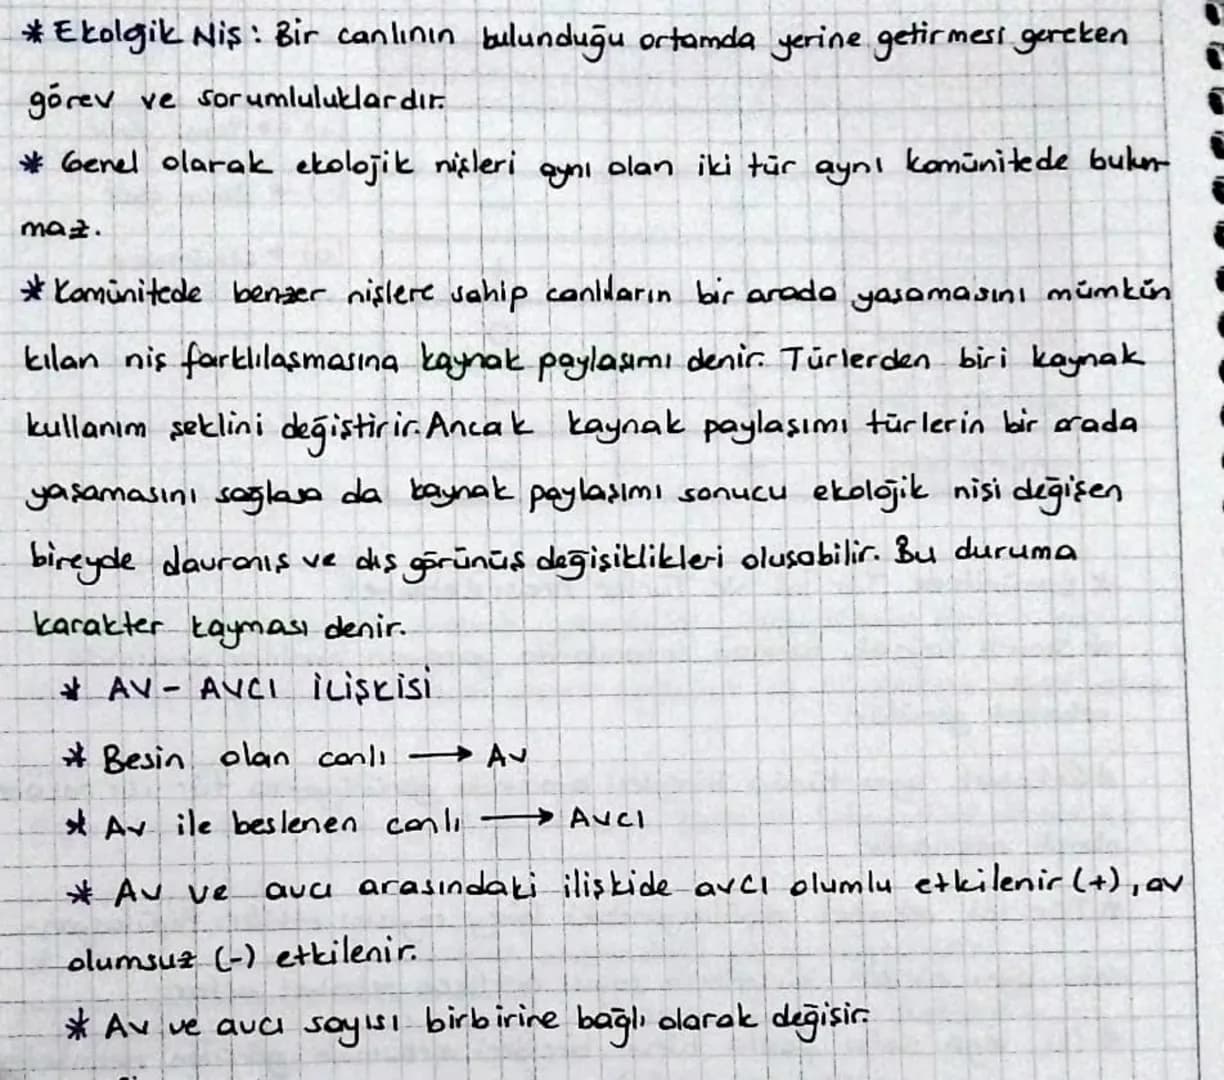 * Ekolgik Niş: Bir canlının bulunduğu ortamda yerine getirmesi gereken
görev ve sorumluluklardır.
* Genel olarak ekolojik nişleri aynı olan iki tür aynı komünitede bulun-
maz.
* Komünitede benzer nişlere sahip canlıların bir arada yaşamasını mümkün
kılan niş farklılaşmasına kaynak paylaşımı denir. Türlerden biri kaynak
kullanım şeklini değiştirir. Ancak kaynak paylaşımı türlerin bir arada
yaşamasını sağlasa da kaynak paylaşımı sonucu ekolojik nişi değişen
bireyde davranış ve dış görünüş değişiklikleri oluşabilir. Bu duruma
karakter kayması denir.
* AV - AVCI İLİŞKİSİ
* Besin olan canlı → Av
* Av ile beslenen canlı → Avcı
* Av ve avcı arasındaki ilişkide avcı olumlu etkilenir (+), av
olumsuz (-) etkilenir.
* Av ve avcı sayısı birbirine bağlı olarak değişir.